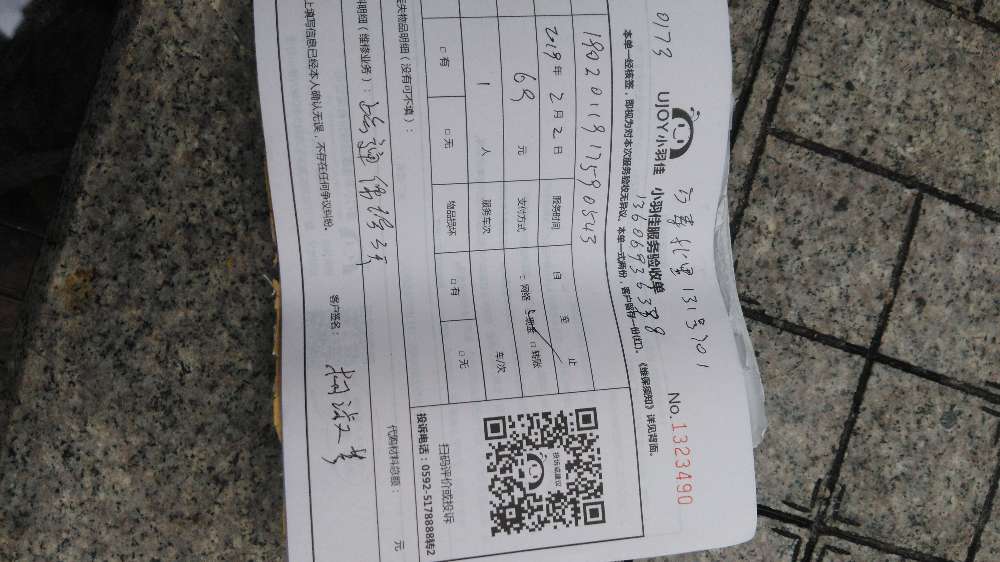 0173
131号701
UJOY小羽佳 小羽佳服务验收单
No.1323490
13606936388
本单一经核签,即视为对本次服务验收无异议。本单一式两份,客户留存一份(红)。《维保须知》详见背面。
1902011912590543
2019年2月2日 服务时间 自 至 止
69 元 支付方式 网络 现金 □转账
1 人 服务车次 车/次
□有 □无 物品损坏 □有 □无
投诉或建议
扫码评价或投诉
投诉电话:0592-5178888转2
失物品明细(没有可不填):
代购材料总额: 元
明细(维修业务):
上填写信息已经本人确认无误,不存在任何争议纠纷。 客户签名: